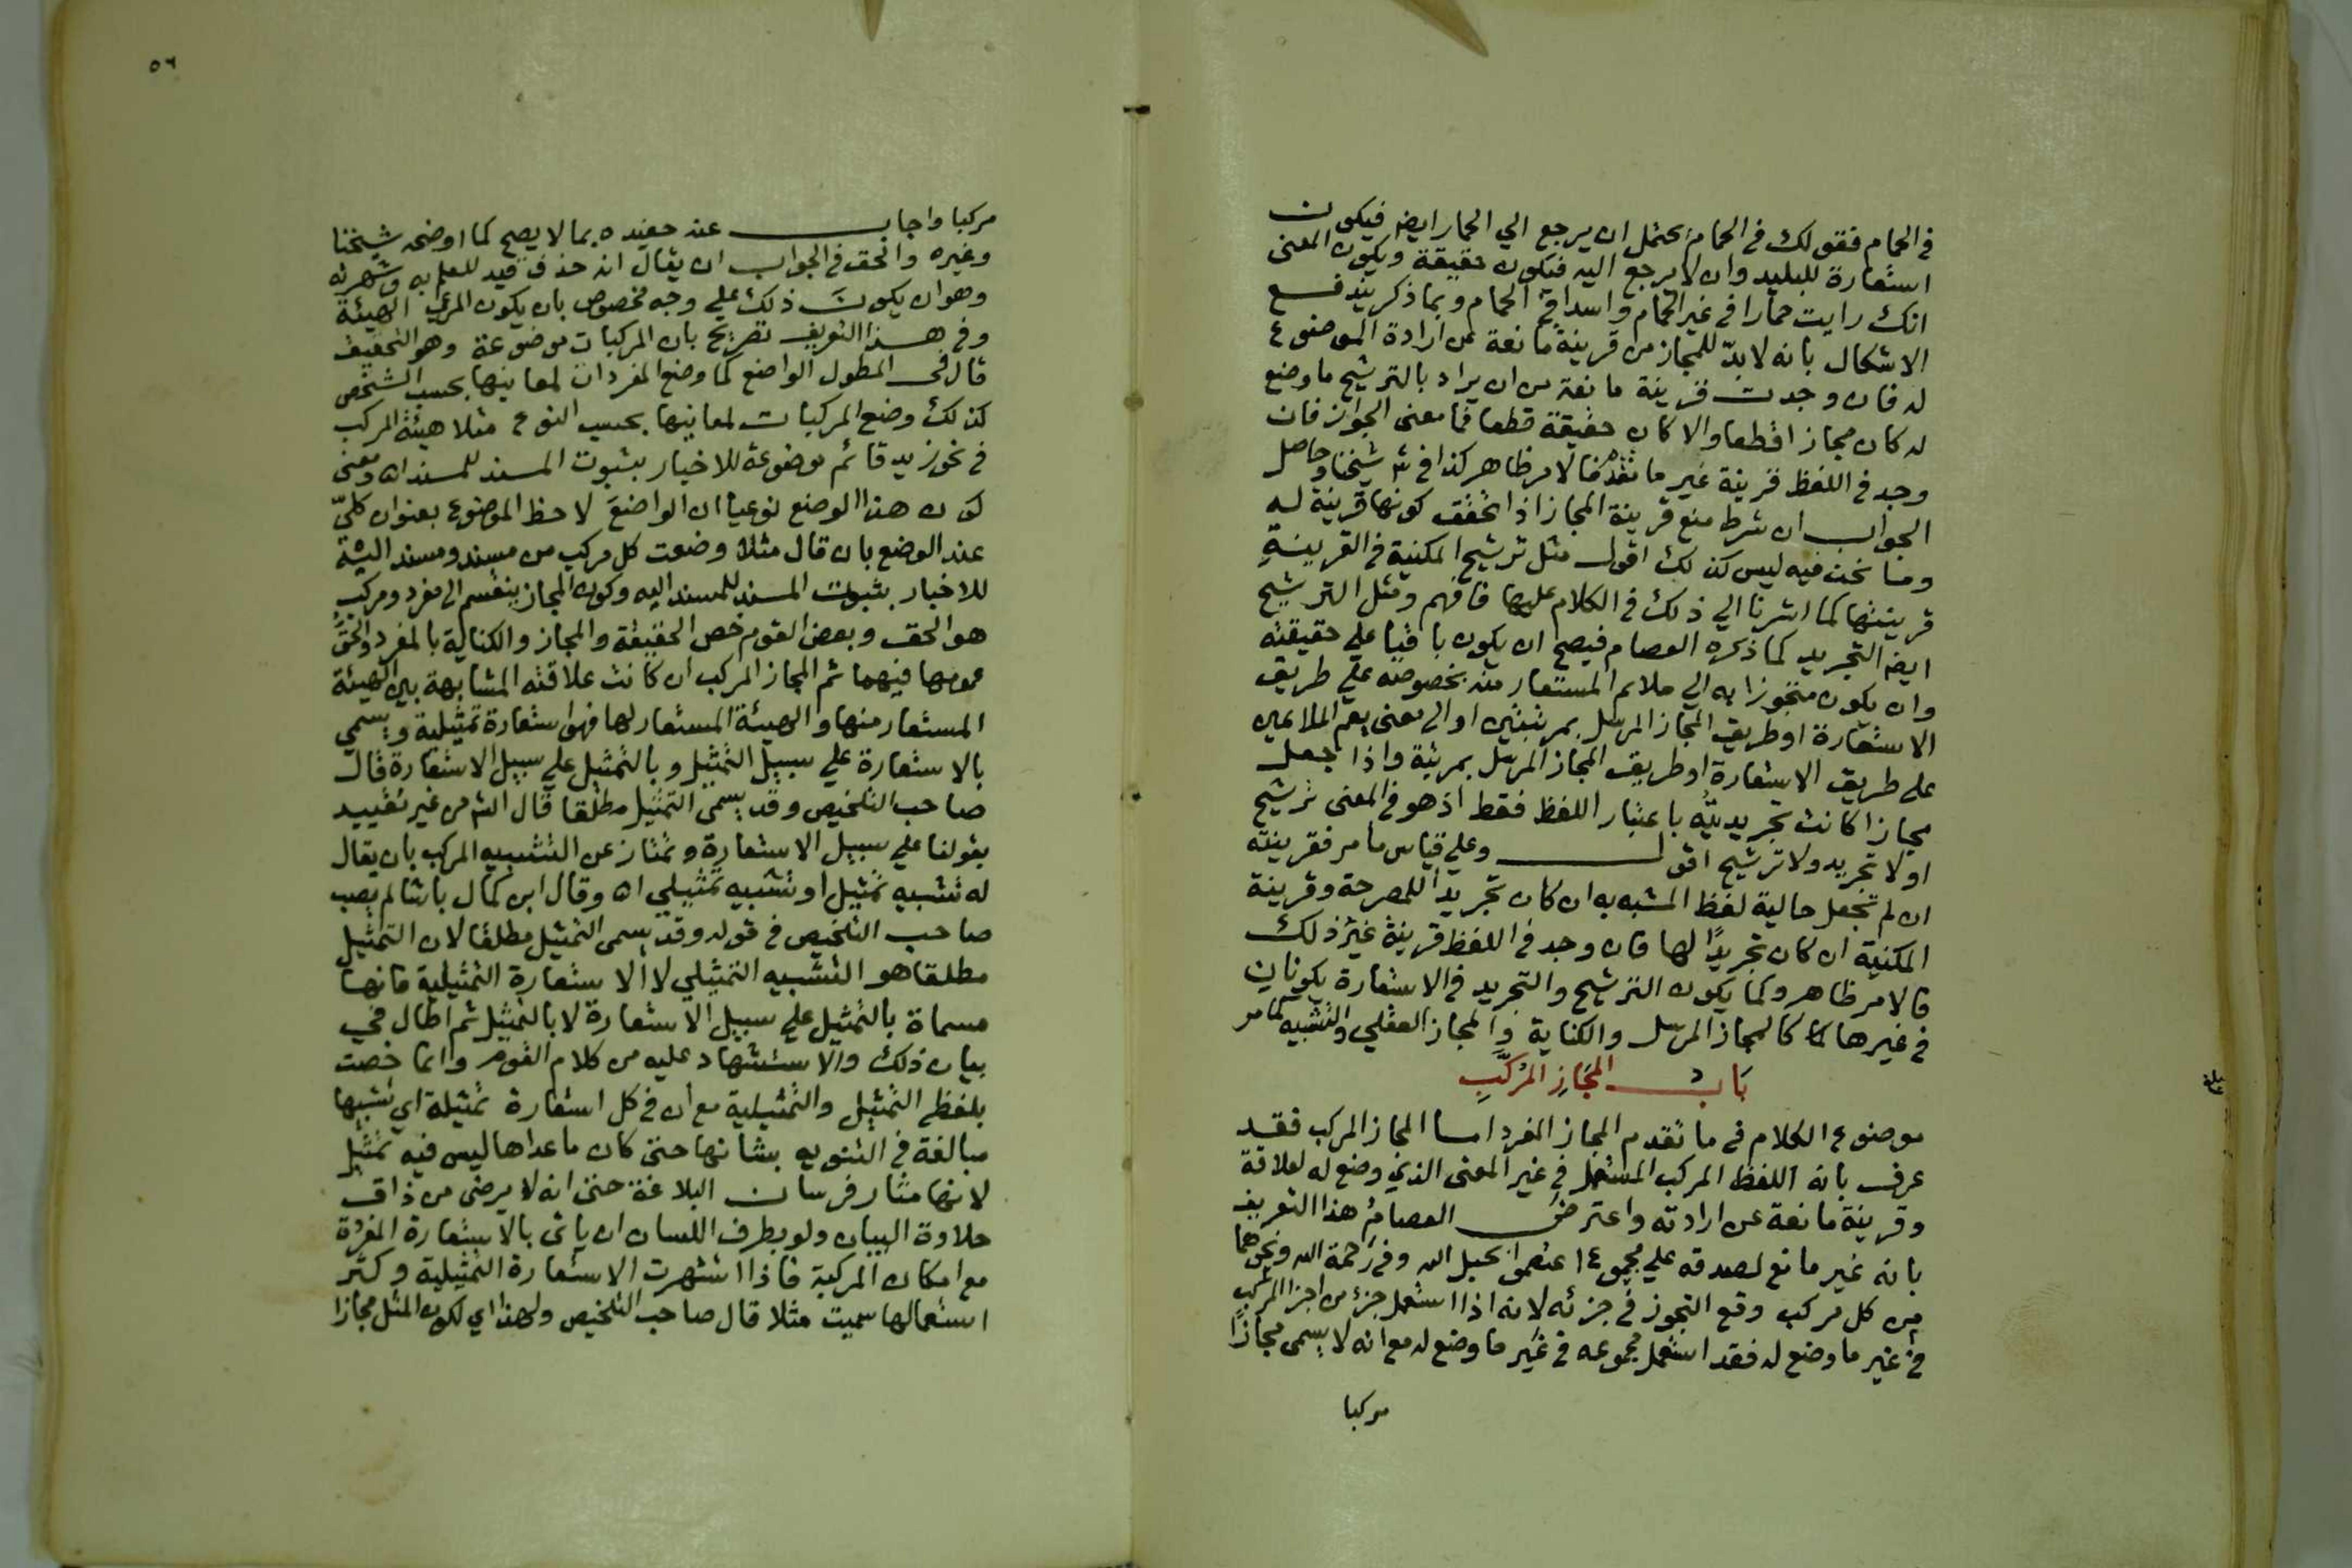 في الحمام فقولك في الحمام يحتمل ان يرجع الي الحمار ايضا فيكون
استعارة للبليد وان لا يرجع اليه فيكون حقيقة ويكون المعنى
انك رايت حمارا في غير الحمام واسدا في الحمام وبما ذكر يندفع
الاشكال بانه لا بدّ للمجاز من قرينة مانعة عن ارادة الموضوع
له فان وجدت قرينة مانعة من ان يراد بالترشيح ما وضع
له كان مجازا قطعا والا كان حقيقة قطعا فما معنى الجواز فان
وجد في اللفظ قرينة غير ما تقدم فالامر ظاهر كذا في شيخنا وحاصل
الجواب ان شرط منع قرينة المجاز اذا تحقق كونها قرينة له
وما نحن فيه ليس كذلك اقول مثل ترشيح المكنية في القرينة
قرينتها كما اشرنا الي ذلك في الكلام عليها فافهم ومثل الترشيح
ايضا التجريد كما ذكره العصام فيصح ان يكون باقيا علي حقيقته
وان يكون متجوزا به الي ملائم المستعار منه بخصوصه علي طريق
الاستعارة او طريق المجاز المرسل بمرتبتين او الي معنى يعم الملايمين
على طريق الاستعارة او طريق المجاز المرسل بمرتبة واذا جعل
مجازا كانت تجريديته باعتبار اللفظ فقط اذ هو في المعنى ترشيح
او لا تجريد ولا ترشيح اقول وعلي قياس ما مر فقرينته
ان لم تجعل حالية لفظ المشبه به ان كان تجريدا للمصرحة وقرينة
المكنية ان كان تجريدًا لها فان وجد في اللفظ قرينة غير ذلك
فالامر ظاهر وكما يكون الترشيح والتجريد في الاستعارة يكونان
في غيرها كالمجاز المرسل والكناية والمجاز العقلي والتشبيه كما مر
باب المجاز المركب
موضوع الكلام في ما تقدم المجاز المفرد اما المجاز المركب فقد
عرف بانه اللفظ المركب المستعمل في غير المعنى الذي وضع له لعلاقة
وقرينة مانعة عن ارادته واعترض العصام هذا التعريف
بانه غير مانع لصدقه علي مجموع اعتصموا بحبل الله وفي رحمة الله ونحوهما
من كل مركب وقع التجوز في جزئه لانه اذا استعمل جزء من اجزا المركب
في غير ما وضع له فقد استعمل مجموعه في غير ما وضع له مع انه لا يسمى مجازًا
مركبا
٥٦
مركبا واجاب عنه حفيده بما لا يصح كما اوضحه شيخنا
وغيره والحق في الجواب ان يقال انه حذف قيد للعلم به وشهرته
وهو ان يكون ذلك علي وجه مخصوص بان يكون المرعي الهيئة
وفي هذا التعريف تصريح بان المركبات موضوعة وهو التحقيق
قال في المطول الواضع كما وضع المفردات لمعانيها بحسب الشخص
كذلك وضع المركبات لمعانيها بحسب النوع مثلا هيئة المركب
في نحو زيد قائم موضوعة للاخبار بثبوت المسند للمسند اه ومعنى
كون هذا الوضع نوعيا ان الواضع لاحظ الموضوع بعنوان كليّ
عند الوضع بان قال مثلا وضعت كل مركب من مسند ومسند اليه
للاخبار بثبوت المسند للمسند اليه وكون المجاز ينقسم الي مفرد ومركب
هو الحق وبعض القوم خص الحقيقة والمجاز والكناية بالمفرد والحق
عمومها فيهما ثم المجاز المركب ان كانت علاقته المشابهة بين الهيئة
المستعار منها والهيئة المستعار لها فهو استعارة تمثيلية ويسمي
بالاستعارة علي سبيل التمثيل وبالتمثيل علي سبيل الاستعارة قال
صاحب التلخيص وقد يسمى التمثيل مطلقا قال الش من غير تقييد
بقولنا علي سبيل الاستعارة وتمتاز عن التشبيه المركب بان يقال
له تشبيه تمثيل او تشبيه تمثيلي اه وقال ابن كمال باشا لم يصب
صاحب التلخيص في قوله وقد يسمى التمثيل مطلقا لان التمثيل
مطلقا هو التشبيه التمثيلي لا الاستعارة التمثيلية فانها
مسماة بالتمثيل علي سبيل الاستعارة لا بالتمثيل ثم اطال في
بيان ذلك والاستشهاد عليه من كلام القوم وانما خصت
بلفظ التمثيل والتمثيلية مع ان في كل استعارة تمثيلة اي تشبيها
مبالغة في التنويه بشانها حتى كان ما عداها ليس فيه تمثيل
لانها مثار فرسان البلاغة حتى انه لا يرضى من ذاق
حلاوة البيان ولو بطرف اللسان ان ياتي بالاستعارة المفردة
مع امكان المركبة فاذا اشتهرت الاستعارة التمثيلية وكثر
استعمالها سميت مثلا قال صاحب التلخيص ولهذا اي لكون المثل مجازا